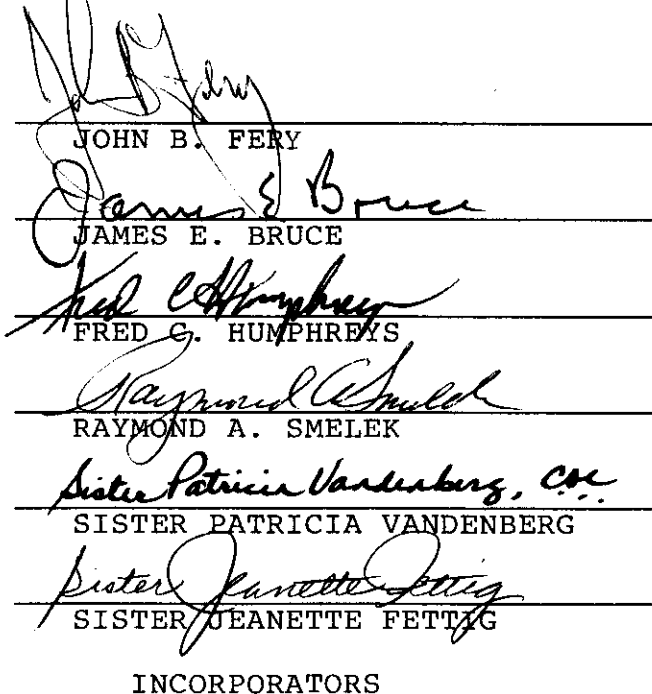 John B Fery
JOHN B. FERY
James E Bruce
JAMES E. BRUCE
Fred C Humphreys
FRED C. HUMPHREYS
Raymond A Smelek
RAYMOND A. SMELEK
Sister Patricia Vandenberg, CSC
SISTER PATRICIA VANDENBERG
Sister Jeanette Fettig
SISTER JEANETTE FETTIG
INCORPORATORS